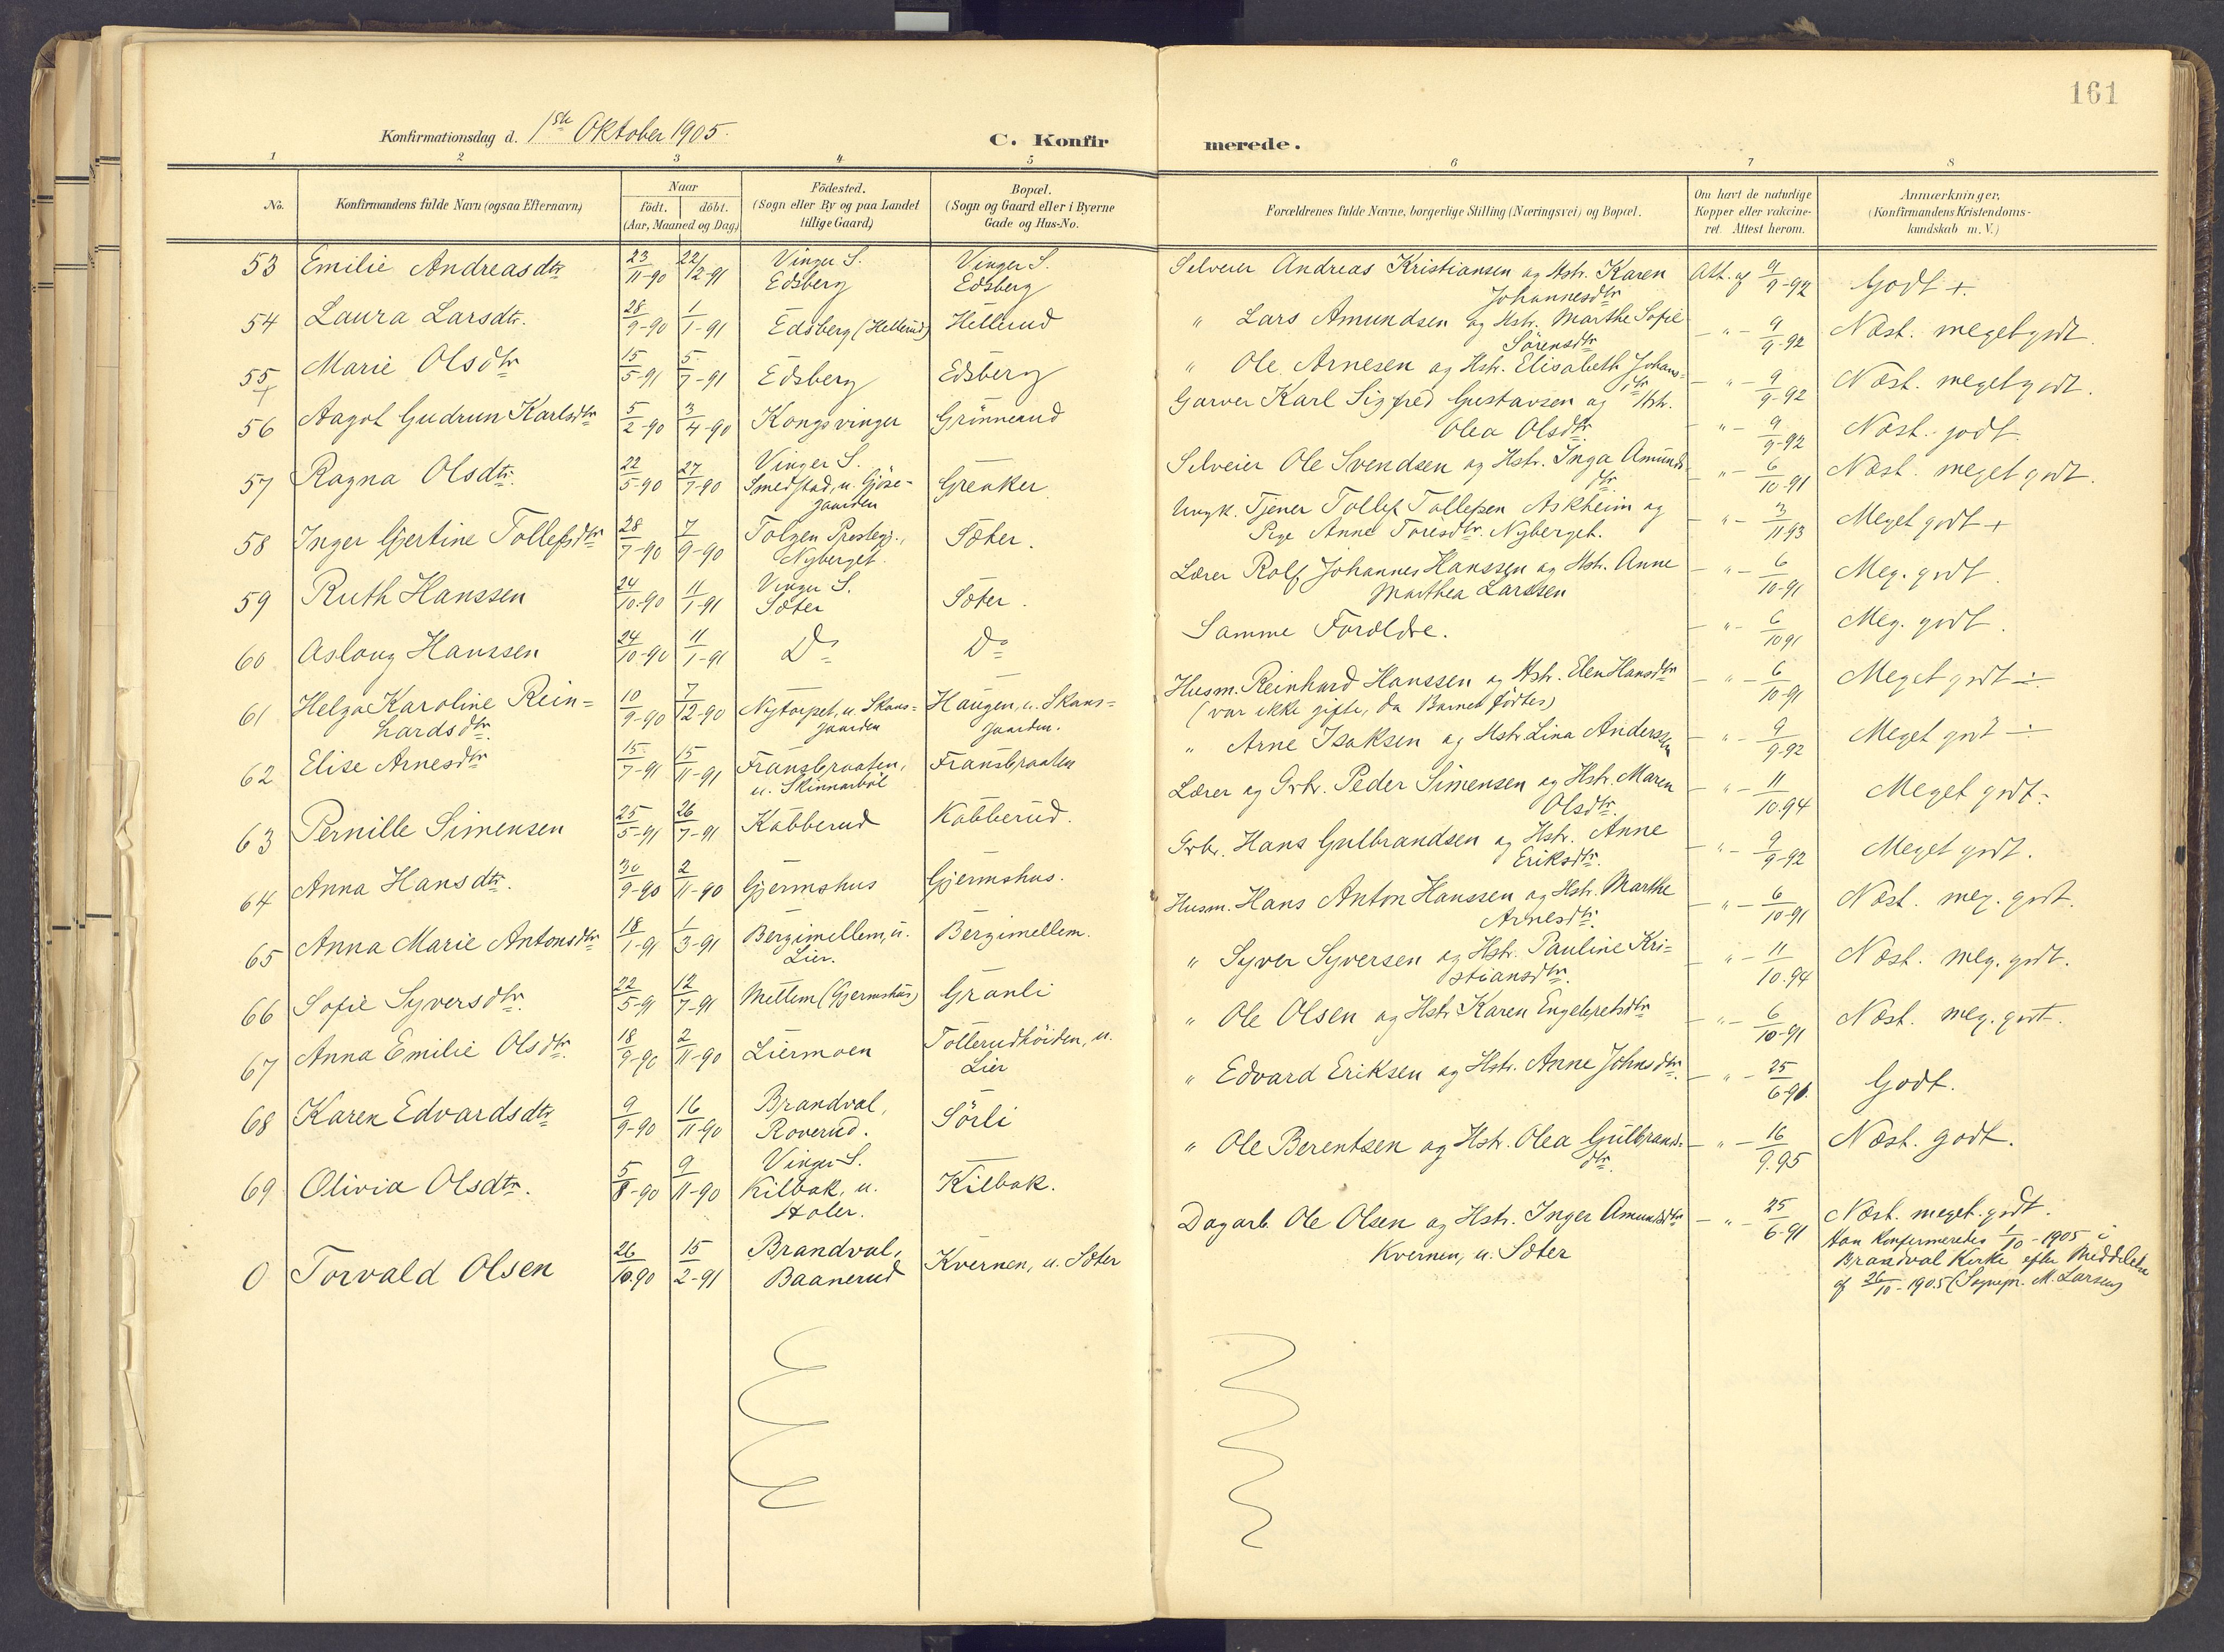 161
Konfirmationsdag d. 1ste Oktober 1905.
C. Konfir
merede.
1 2 3 4 5 6 7 8
No.
Konfirmandens fulde Navn (ogsaa Efternavn)
Naar
födt. döbt.
(Aar, Maaned og Dag)
Födested.
(Sogn eller By og paa Landet
tillige Gaard)
Bopæl.
(Sogn og Gaard eller i Byerne
Gade og Hus-No.
Forældrenes fulde Navne, borgerlige Stilling (Næringsvei) og Bopæl.
Om havt de naturlige
Kopper eller vakcine-
ret. Attest herom.
Anmærkninger.
(Konfirmandens Kristendoms-
kundskab m. V.)
53 Emilie Andreasdtr 23/11-90 22/12-91 Vinger S. Vinger S. Selveier Andreas Kristiansen og Hstr. Karen Att. af 9/9-92 Godt +.
Edsberg Edsberg Johannesdtr
54 Laura Larsdtr. 28/9-90 1/1-91 Edsberg (Hellerud) Hellerud " Lars Amundsen og Hstr. Marthe Sofie - " - 9/9-92 Næst. meget godt.
Sörensdtr
55 Marie Olsdtr 15/5-91 5/7-91 Edsberg Edsberg " Ole Arnesen og Hstr. Elisabeth Johans= - " - 9/9-92 Næst. meget godt.
+ dtr
56 Aagot Gudrun Karlsdtr 5/2-90 3/4-90 Kongsvinger Grönneand Garver Karl Sigfred Gustavsen og Hstr. - " - 9/9-92 Næst. godt
Olea Olsdtr.
57 Ragna Olsdtr. 22/5-90 27/7-90 Vinger S. Greaker Selveier Ole Svendsen og Hstr. Inga Amunds- - " - 6/10-91 Næst. meget godt.
Smedstad, u. Gjöse- dtr.
gaarden
58 Inger Gjertine Tollefsdtr 28/7-90 7/9-90 Tolgen Prestegj., Sæter. Ungk. Tjener Tollef Tollefsen Askheim og - " - 3/11 93 Meget godt +
Nyberget. Pige Anne Toresdtr. Nyberget.
59 Ruth Hanssen 24/10-90 11/1-91 Vinger S. Sæter. Lærer Rolf Johannes Hanssen og Hstr. Anne - " - 6/10-91 Meg. godt.
Sæter Marthea Larssen
60 Aslaug Hanssen 24/10-90 11/1-91 Do Do Samme Forældre. - " - 6/10 91 Meg. godt.
61 Helga Karoline Rein= 10/9-90 7/12-90 Nytorpet, u. Skans= Haugen, u. Skans= Husm. Reinhard Hanssen og Hstr. Elen Hansdtr - " - 6/10-91 Meget godt ÷
hardsdtr. gaarden gaarden. (var ikke gifte, da Barnet födtes)
62 Elise Arnesdtr 15/7-91 15/11-91 Fransbraaten, Fransbraaten " Arne Isaksen og Hstr. Lina Anderssen - " - 9/9-92 Meget godt ÷
u. Skinnarböl
63 Pernille Simensen 25/5-91 26/7-91 Kabberud Kabberud. Lærer og Grbr. Peder Simensen og Hstr. Maren - " - 11/10.94 Meget godt.
Olsdtr.
64 Anna Hansdtr. 30/9-90 2/11-90 Gjermshus Gjermshus. Grbr. Hans Gulbrandsen og Hstr. Anne - " - 9/9-92 Meget godt.
Eriksdtr.
65 Anna Marie Antonsdtr 18/1-91 1/3-91 Bergimellem, u. Bergimellem. Husm. Hans Anton Hanssen og Hstr. Marthe - " - 6/10-91 Næst. meg. godt.
Lier. Arnesdtr.
66 Sofie Syversdtr. 22/5-91 12/7-91 Mellem (Gjermshus) Granli " Syver Syversen og Hstr. Pauline Kri= - " - 11/10.94 Næst. meg. godt.
stiansdtr.
67 Anna Emilie Olsdtr. 18/9-90 2/11-90 Liermoen Tollerudhöiden, u. " Ole Olsen og Hstr. Karen Engebretsdtr - " - 6/10-91 Næst. meg. godt.
Lier
68 Karen Edvardsdtr 9/9-90 16/11-90 Brandval, Sörli " Edvard Eriksen og Hstr. Anne Johnsdtr. - " - 25/6-91. Godt.
Roverud.
69 Olivia Olsdtr. 5/8-90 9/11-90 Vinger S. Kilbak. " Ole Berentsen og Hstr. Olea Gulbrands- - " - 16/9.95 Næst. godt.
Kilbak, u. dtr.
Holer.
0 Torvald Olsen 26/10.90 15/2-91 Brandval, Kvernen, u. Sæter Dagarb. Ole Olsen og Hstr. Inger Amundsdtr - " - 25/6-91 Næst. meget godt.
Baanerud Kvernen, u. Sæter
Han Konfirmeredes 1/10-1905 i
Brandval Kirke efter Meddelelse
af 26/10-1905 (Sognepr. M. Larsen)